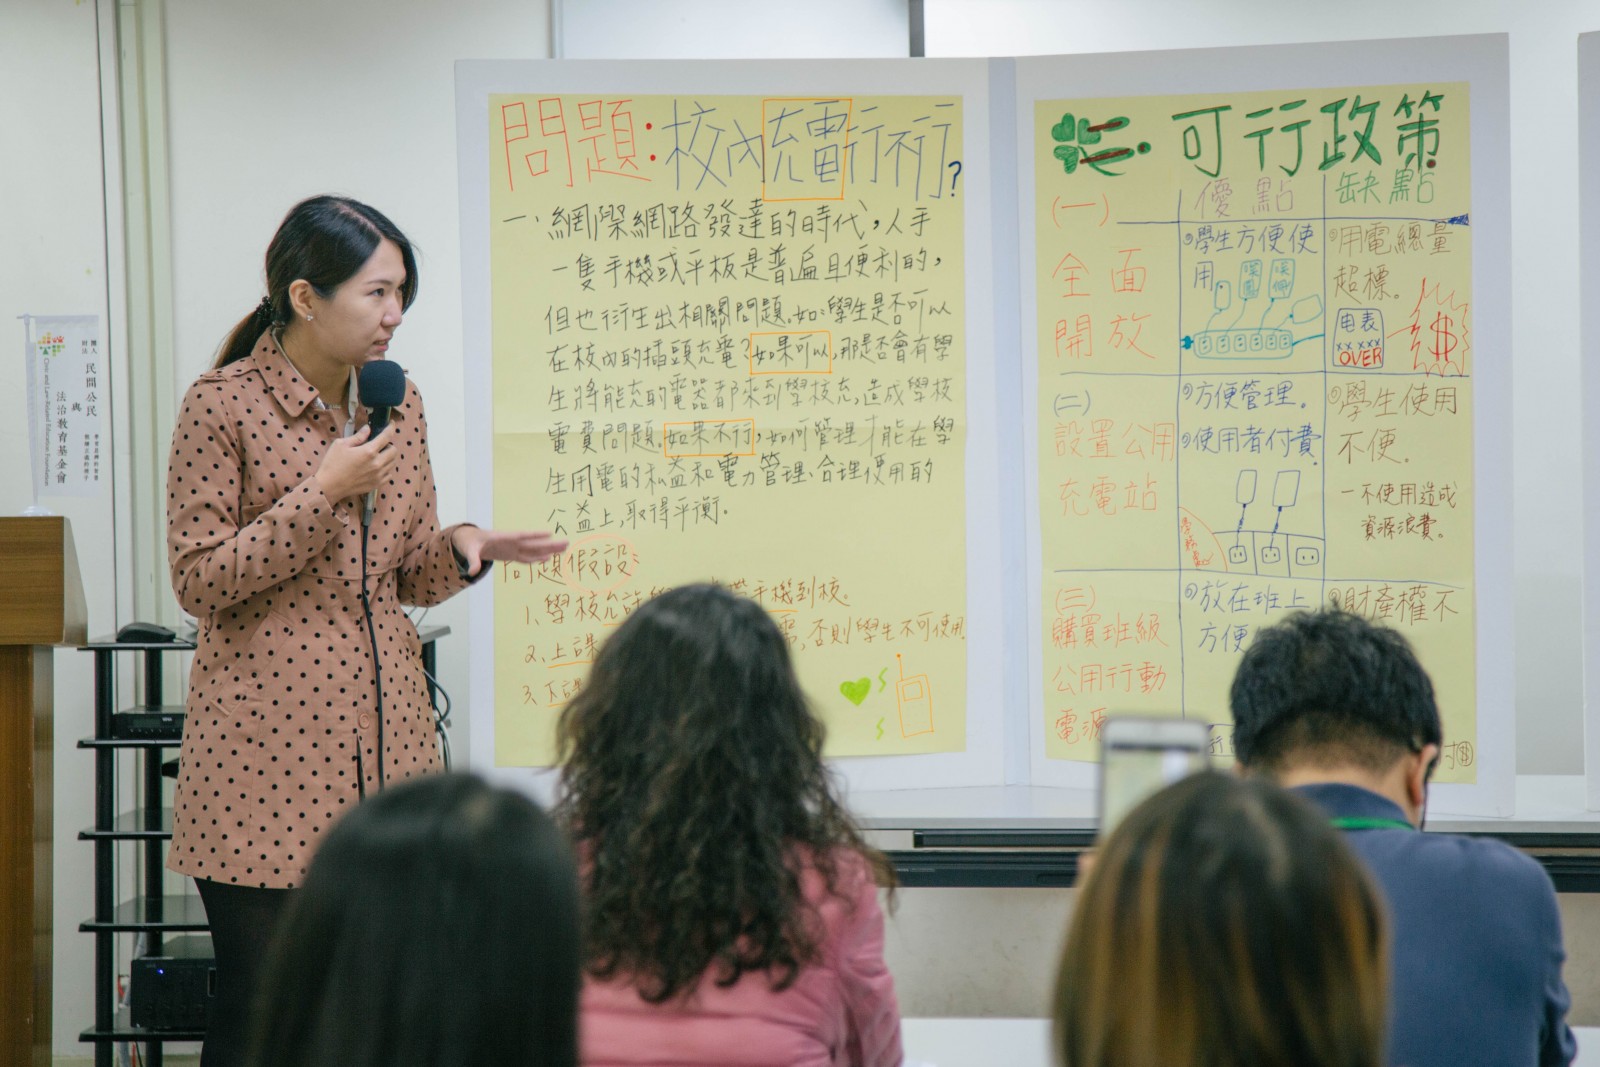 問題：校內充電行不行？
一、網際網路發達的時代，人手
一隻手機或平板是普遍且便利的，
但也衍生出相關問題。如：學生是否可以
在校內的插頭充電？如果可以，那是否會有學
生將能充的電器都來到學校充，造成學校
電費問題。如果不行，如何管理才能在學
生用電的私益和電力管理、合理使用的
公益上，取得平衡。
問題假設：
1、學校允許 手機到校。
2、上課 否則學生不可使用
3、下課
可行政策
優點 缺點
(一)
全面
開放
學生方便使
用
用電總量
超標。
电表
XX XXX
OVER
$
(二)
設置公用
充電站
方便管理。
使用者付費
學生使用
不便。
一不使用造成
資源浪費。
(三)
購買班級
公用行動
電源
放在班上
方便
財產權不
財團法人 民間公民
與
法治教育基金會
Civic and Law-Related Education Foundation